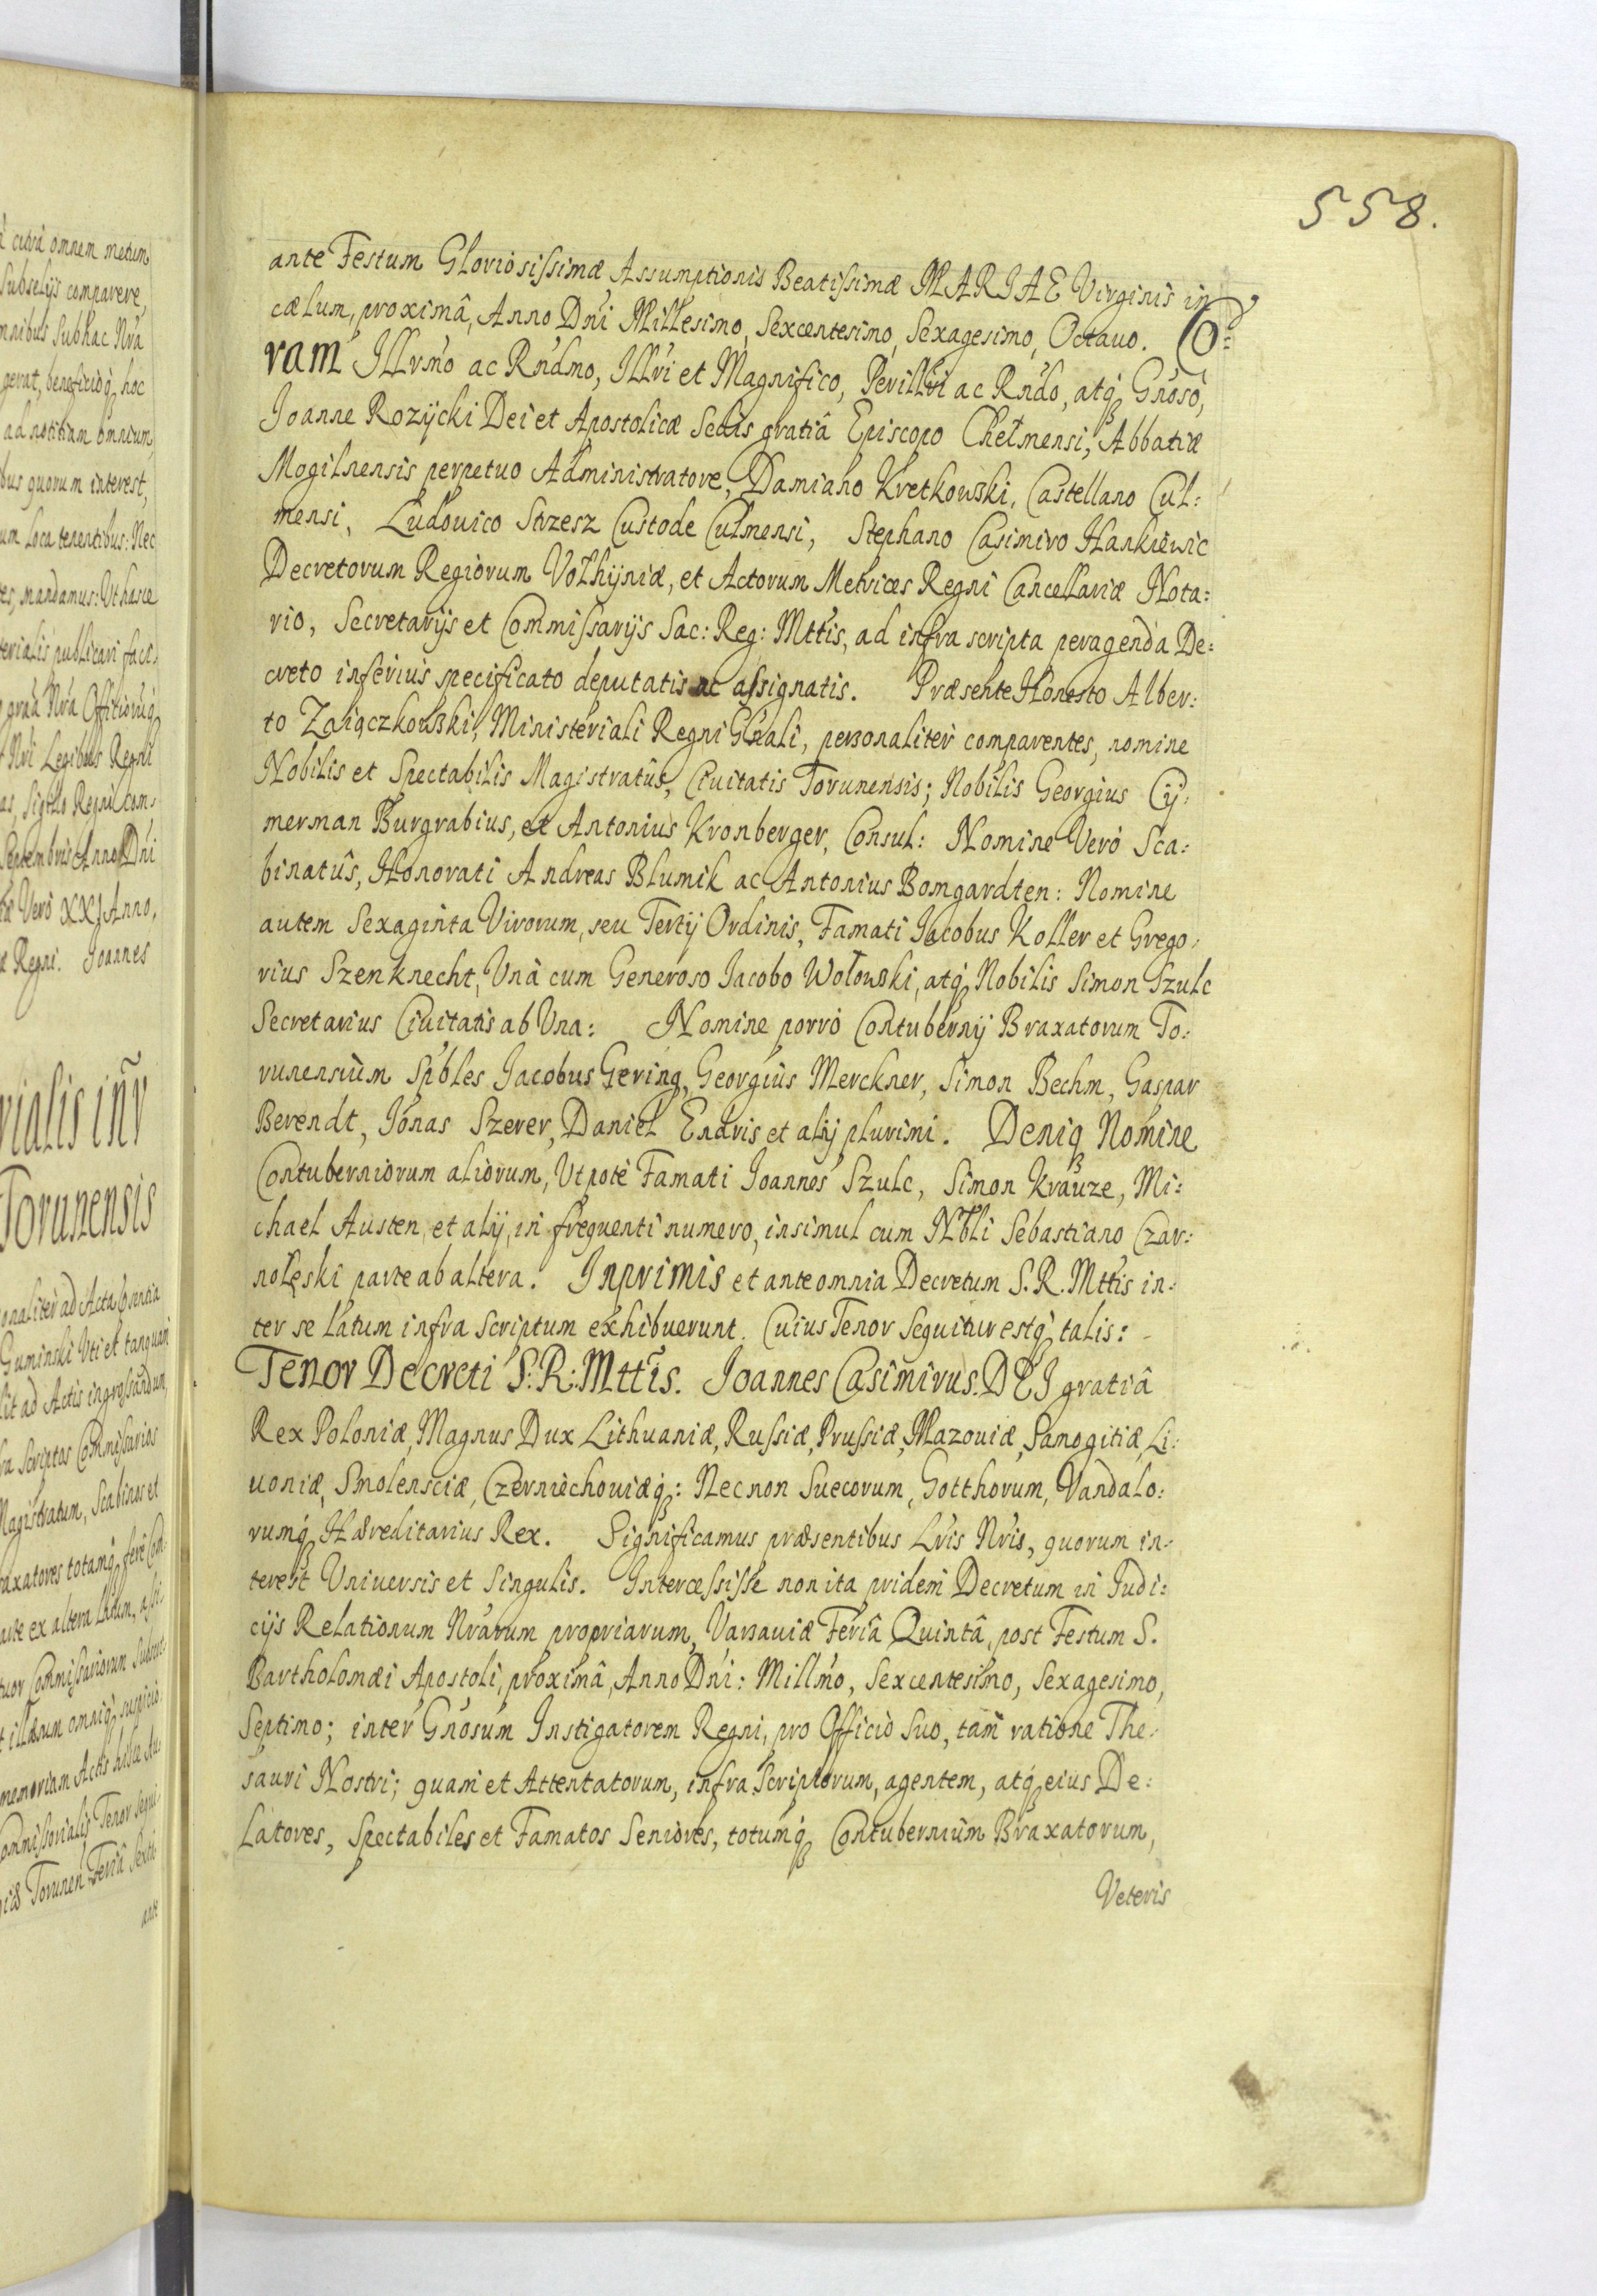 558.
ante Festum Gloriosissimæ Assumptionis Beatissimæ MARIAE Virginis in
cælum, proximâ, Anno Dni Millesimo, Sexcentesimo, Sexagesimo, Octauo. Co=
ram Illrmo ac Rndmo, Illri et Magnifico, Perillri ac Rndo, atq Gnoso,
Joanne Rozycki Dei et Apostolicæ Sedis gratiâ Episcopo Chełmensi, Abbatiæ
Mogilnensis perpetuo Administratore, Damiano Kretkowski, Castellano Cul:
mensi, Ludouico Strzesz Custode Culmensi, Stephano Casimiro Hankiewic
Decretorum Regiorum Vołhyniæ, et Actorum Metrices Regni Cancellariæ Nota:
rio, Secretarijs et Commissarijs Sac: Reg: Mttis, ad infra scripta peragenda De:
creto inferius specificato deputatis ac assignatis. Præsente Honesto Alber:
to Zaiączkowski, Ministeriali Regni Gnali, personaliter comparentes, nomine
Nobilis et Spectabilis Magistratûs, Ciuitatis Torunensis; Nobilis Georgius Cy:
merman Burgrabius, et Antonius Kronberger, Consul: Nomine Verò Sca:
binatûs, Honorati Andreas Blumik ac Antonius Bomgardten: Nomine
autem Sexaginta Virorum, seu Tertij Ordinis, Famati Jacobus Koller et Grego:
rius Szenknecht, Vnà cum Generoso Jacobo Wołowski, atq Nobilis Simon Szulc
Secretarius Ciuitatis ab Vna: Nomine porrò Contubernij Braxatorum To:
runensium Spbles Jacobus Gering, Georgius Merckner, Simon Bechm, Gaspar
Berendt, Jonas Szerer, Daniel Endris et alij plurimi. Deniq Nomine
Contuberniorum aliorum, Vtpotè Famati Joannes Szulc, Simon Krauze, Mi:
chael Austen, et alij, in frequenti numero, insimul cum Nbli Sebastiano Czar:
noleski parte ab altera. Inprimis et ante omnia Decretum S. R. Mttis in:
ter se latum infra scriptum exhibuerunt. Cuius Tenor Sequitur estq talis:
Tenor Decreti S: R: Mttis. Joannes Casimirus DEI gratiâ
Rex Poloniæ, Magnus Dux Lithuaniæ, Russiæ, Prussiæ, Mazouiæ, Samogitiæ, Li:
uoniæ, Smolensciæ, Czerniechouiæq: Necnon Suecorum, Gotthorum, Vandalo:
rumq Hæreditarius Rex. Significamus præsentibus Lris Nris, quorum in:
terest Vniuersis et Singulis. Intercessisse non ita pridem Decretum in Judi:
cijs Relationum Nrarum propriarum, Varsauiæ Feriâ Quintâ, post Festum S.
Bartholomæi Apostoli, proximâ, Anno Dni: Millmo, Sexcentesimo, Sexagesimo,
Septimo; inter Gnosum Instigatorem Regni, pro Officio Suo, tam ratione The:
sauri Nostri; quam et Attentatorum, infra Scriptorum, agentem, atq eius De:
Latores, Spectabiles et Famatos Seniores, totumq Contubernium Braxatorum,
Veteris